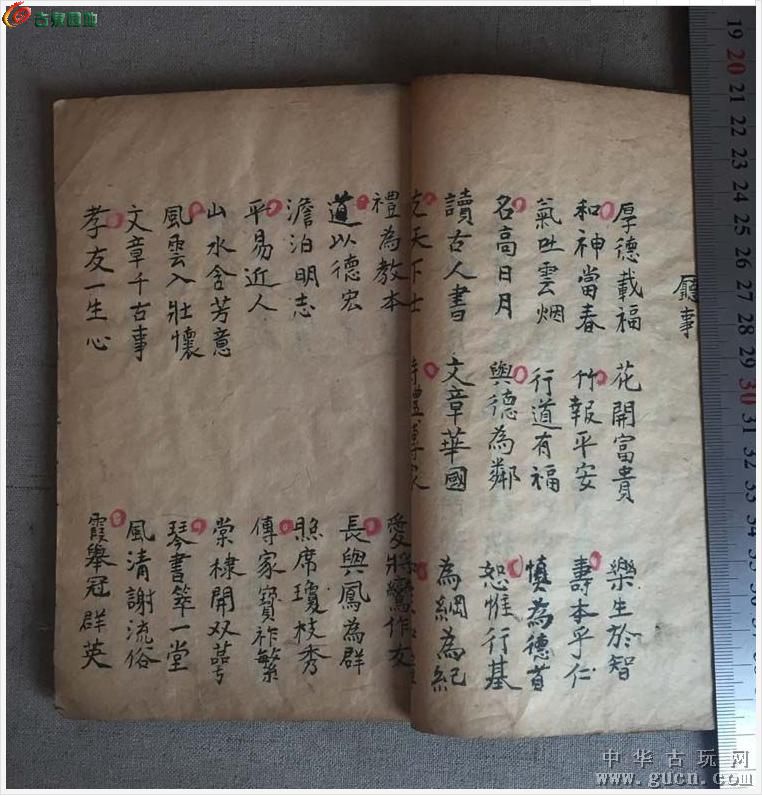 古泉園地
廳事
厚德載福
和神當春
氣吐雲烟
名高日月
讀古人書
天下士
花開富貴
竹報平安
行道有福
與德為鄰
文章華國
樂生於智
壽本乎仁
慎為德首
恕惟行基
為綱為紀
禮為教本
道以德宏
澹泊明志
平易近人
山水含芳意
風雲入壯懷
文章千古事
孝友一生心
愛將鸞作友
長與鳳為群
照席瓊枝秀
傳家寶祚繁
棠棣開双萼
琴書萃一堂
風清謝流俗
霞舉冠群英
19
20
21
22
23
24
25
26
27
28
29
30
31
32
33
中华古玩网
www.gucn.com